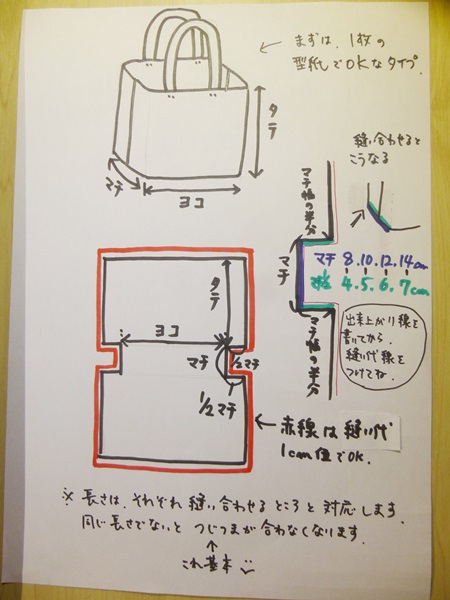 まずは、1枚の
型紙でOKなタイプ。
タテ
マチ
ヨコ
縫い合わせると
こうなる
マチ幅の半分
マチ
マチ 8.10.12.14cm
4.5.6.7cm
マチ幅の半分
出来上がり線を
書いてから
縫い代線を
つけてね。
タテ
ヨコ
マチ
1/2マチ
1/2マチ
赤線は縫い代
1cm位でOK.
※長さは、それぞれ縫い合わせるところと対応します。
同じ長さでないとつじつまが合わなくなります。
これ基本